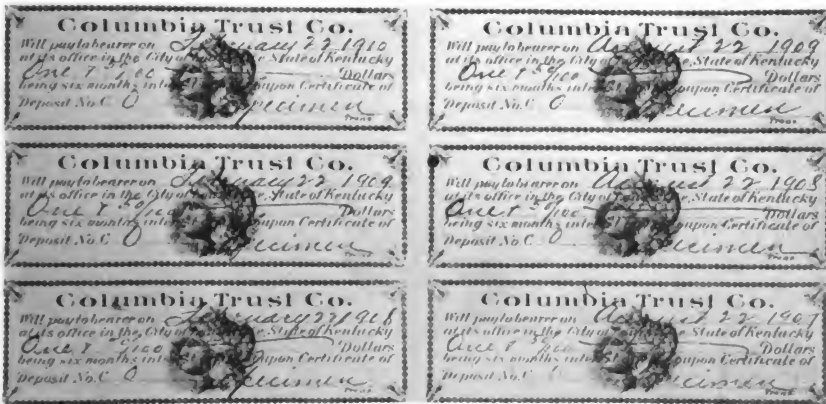 Columbia Trust Co.
Will pay to bearer on February 22 1910
at its office in the City of State of Kentucky
One & 50/100 Dollars
being six months Coupon Certificate of
Deposit No. C 0 Specimen
Treas.
Columbia Trust Co.
Will pay to bearer on August 22 1909
at its office in the City of State of Kentucky
One & 50/100 Dollars
being six months Coupon Certificate of
Deposit No. C 0 Specimen
Treas.
Columbia Trust Co.
Will pay to bearer on February 22 1909
at its office in the City of State of Kentucky
One & 50/100 Dollars
being six months Coupon Certificate of
Deposit No. C 0 Specimen
Treas.
Columbia Trust Co.
Will pay to bearer on August 22 1908
at its office in the City of State of Kentucky
One & 50/100 Dollars
being six months Coupon Certificate of
Deposit No. C 0 Specimen
Treas.
Columbia Trust Co.
Will pay to bearer on February 22 1908
at its office in the City of State of Kentucky
One & 50/100 Dollars
being six months Coupon Certificate of
Deposit No. C 0 Specimen
Treas.
Columbia Trust Co.
Will pay to bearer on August 22 1907
at its office in the City of State of Kentucky
One & 50/100 Dollars
being six months Coupon Certificate of
Deposit No. C 0 Specimen
Treas.